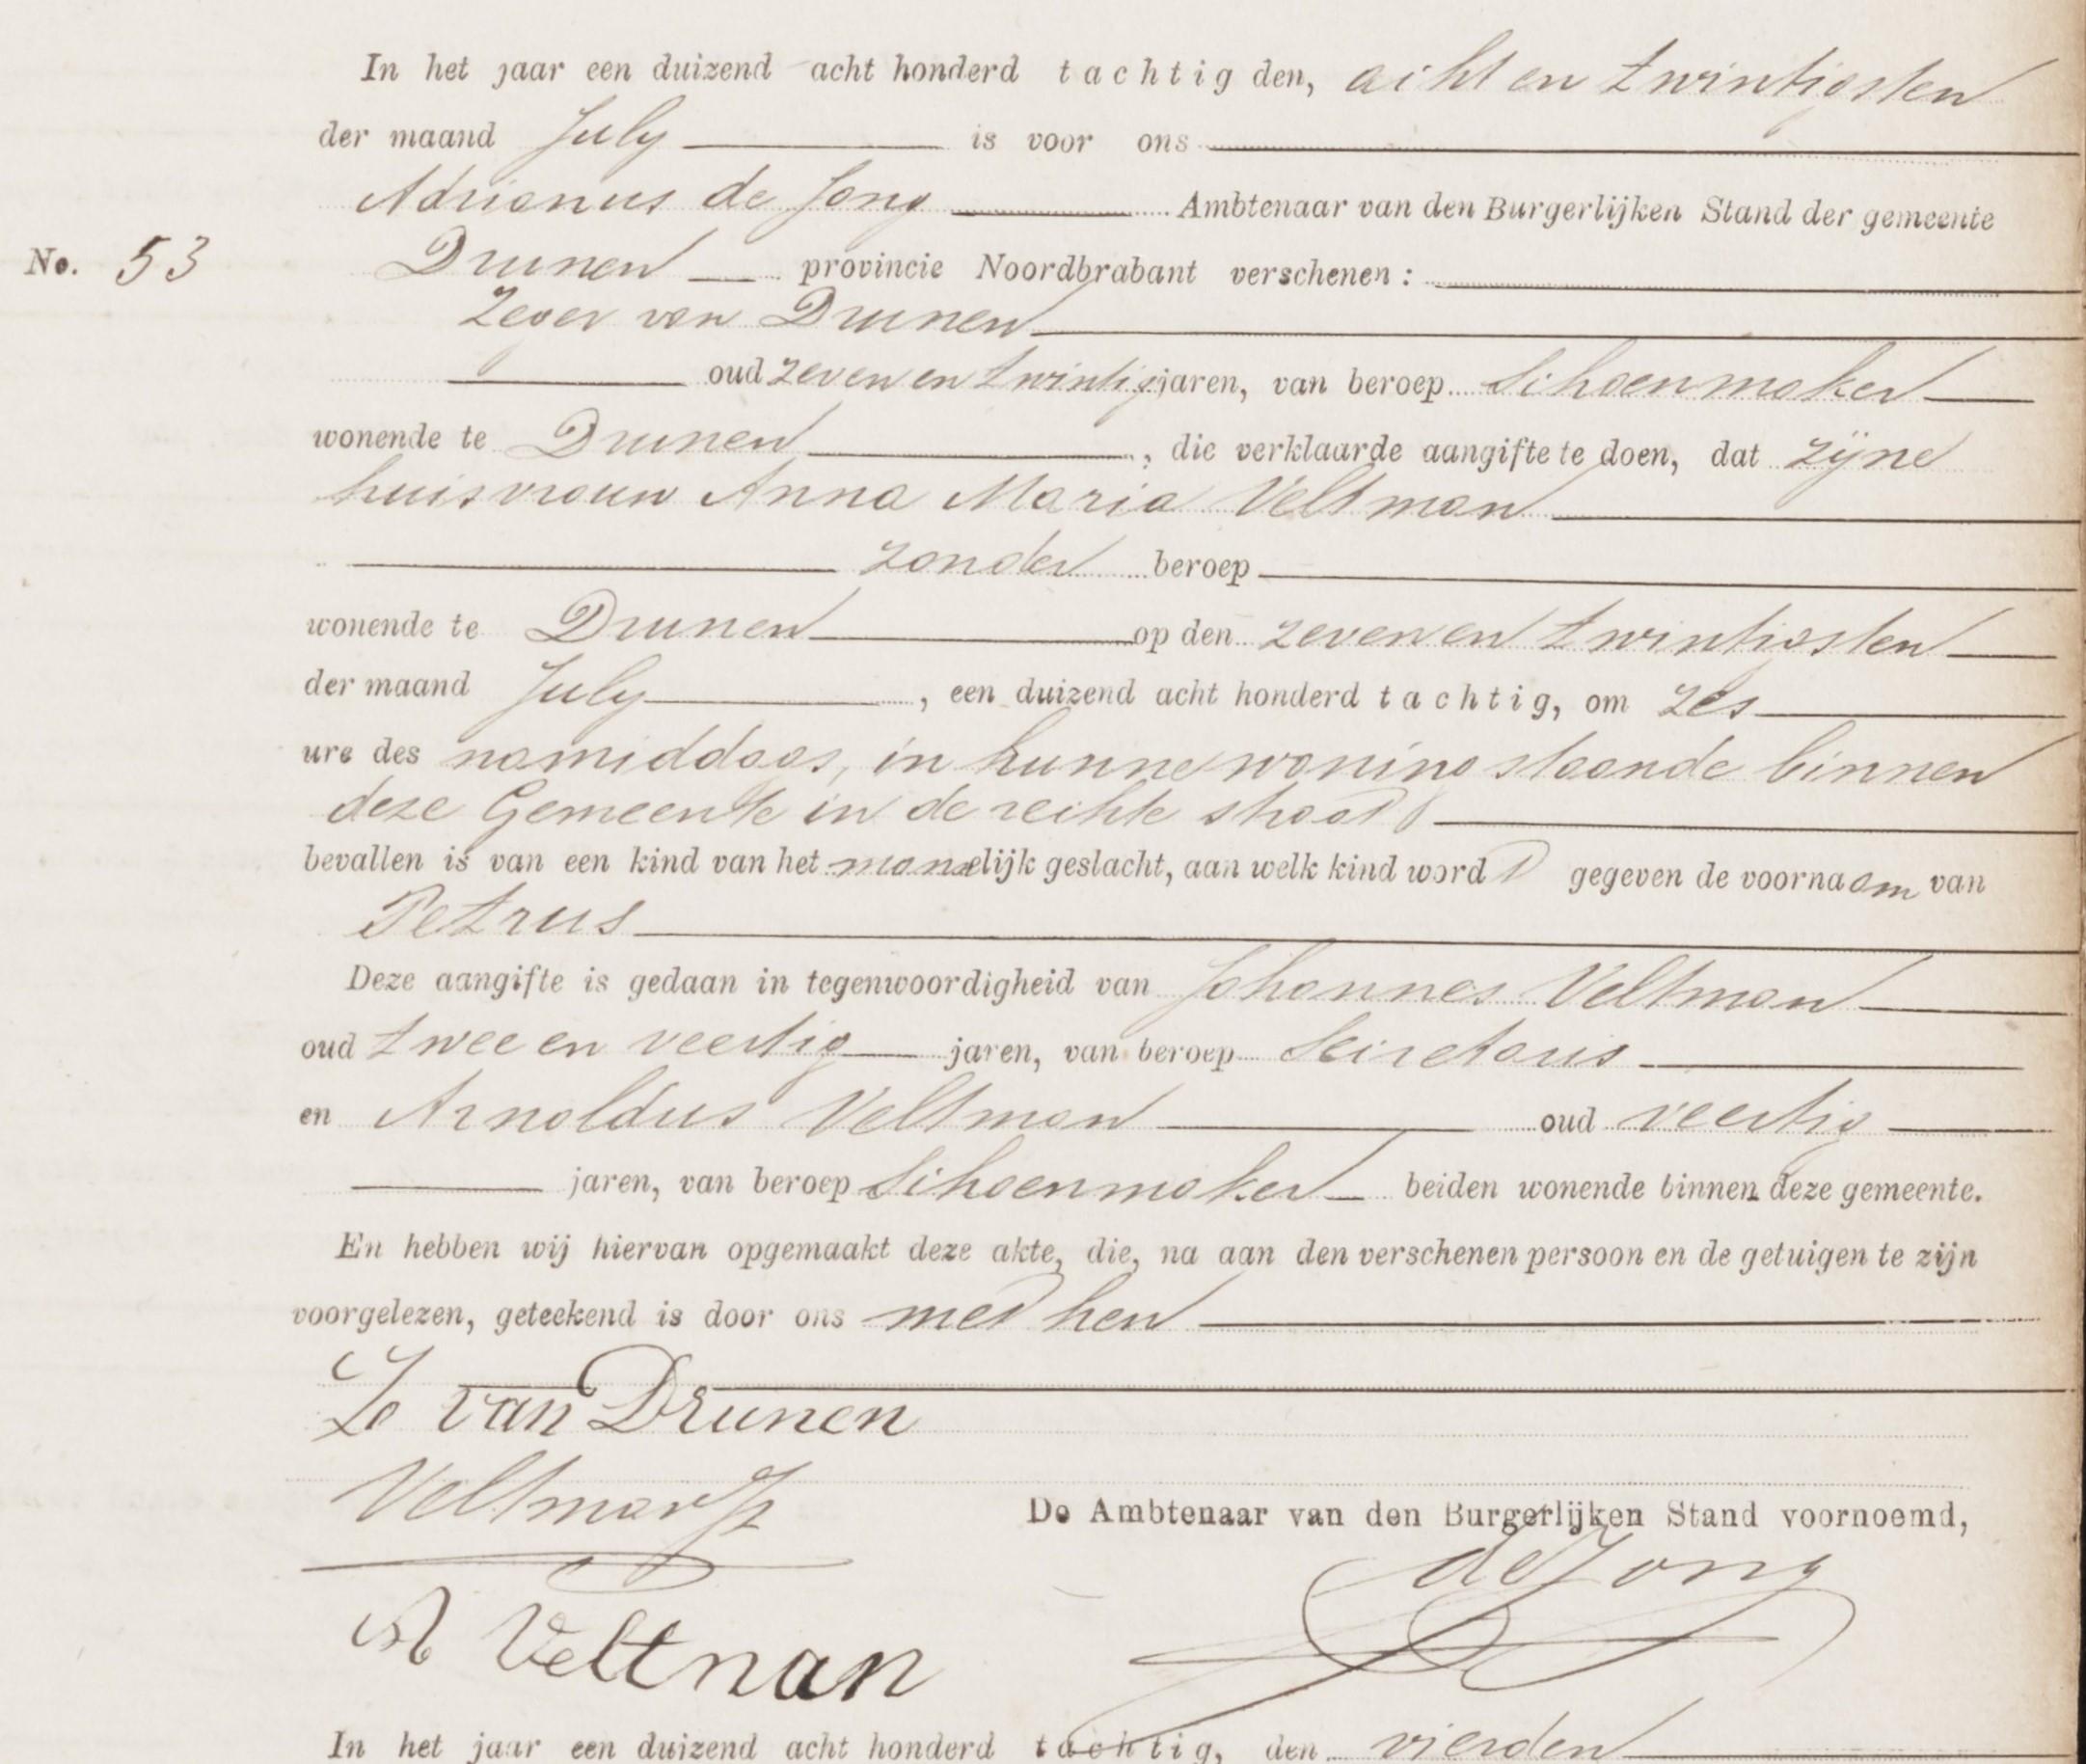 In het jaar een duizend acht honderd tachtig den, acht en twintigsten
der maand July is voor ons
Adrianus de Jong Ambtenaar van den Burgerlijken Stand der gemeente
No. 53 Drunen provincie Noordbrabant verschenen:
Zeger van Drunen
oud zeven en twintig jaren, van beroep Schoenmaker
wonende te Drunen, die verklaarde aangifte te doen, dat zijne
huisvrouw Anna Maria Veltman
zonder beroep
wonende te Drunen op den zeven en twintigsten
der maand July, een duizend acht honderd tachtig, om zes
ure des namiddags, in hunne woning staande binnen
deze Gemeente in de rechte straat
bevallen is van een kind van het mannelijk geslacht, aan welk kind wordt gegeven de voornaam van
Petrus
Deze aangifte is gedaan in tegenwoordigheid van Johannes Veltman
oud twee en veertig jaren, van beroep Secretaris
en Arnoldus Veltman oud veertig
jaren, van beroep Schoenmaker beiden wonende binnen deze gemeente.
En hebben wij hiervan opgemaakt deze akte, die, na aan den verschenen persoon en de getuigen te zijn
voorgelezen, geteekend is door ons met hen
Z van Drunen
Veltman
De Ambtenaar van den Burgerlijken Stand voornoemd,
de Jong
A Veltman
In het jaar een duizend acht honderd tachtig, den vierden